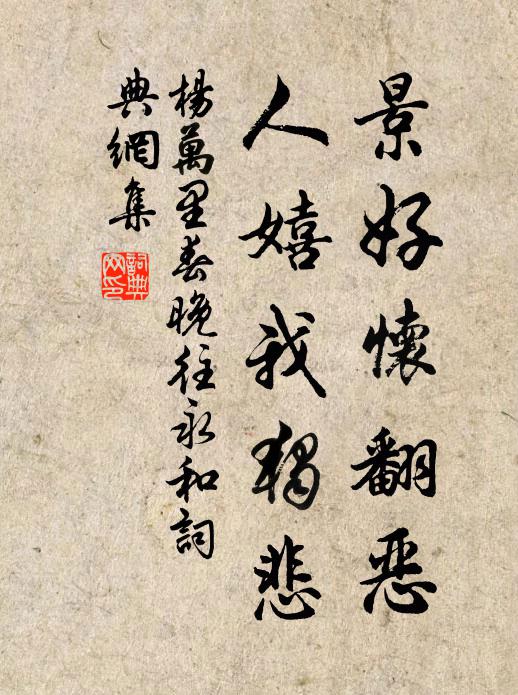 景好懷翻惡
人嬉我獨悲
楊萬里春晚往永和詞
典網集
詞典
网印